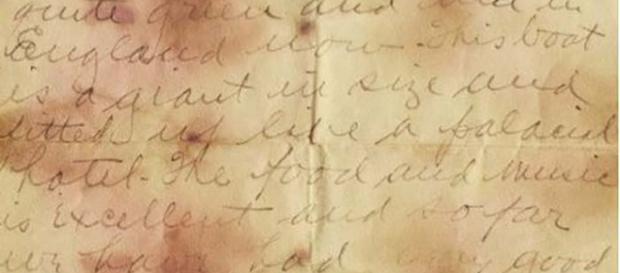 quite green and
England now. This boat
is a giant in size and
fitted up like a palacial
hotel. The food and music
is excellent and so far
we have had very good